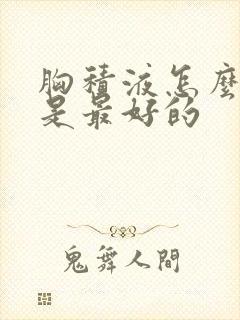 胸積液怎麼
是最好的
鬼舞人間